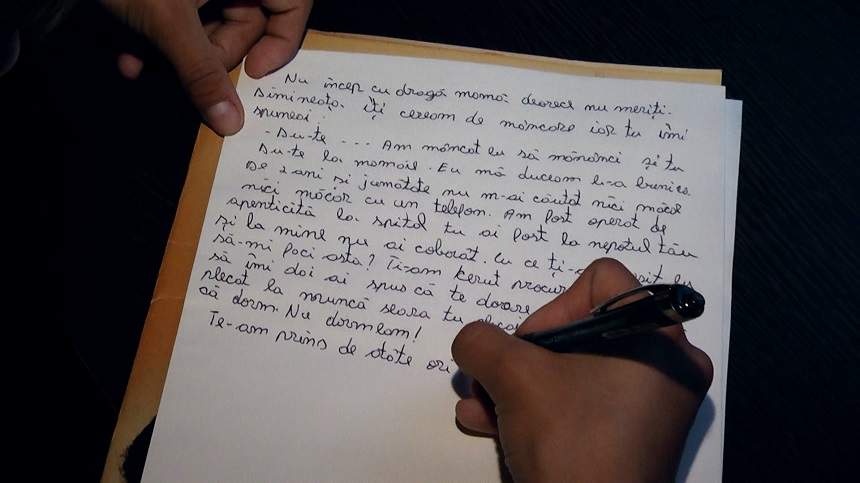 Nu încep cu dragă mamă deoreci nu meriți.
Dimineața îți ceream de mâncare iar tu îmi
spuneai :
- Du-te ... Am mâncat eu să mănânci și tu
Du-te la mamaie. Eu mă duceam la bunica
De 2 ani și jumătate nu m-ai căutat nici măcar
nici măcar cu un telefon. Am fost operat de
apenticită la spital tu ai fost la nepotul tău
și la mine nu ai coborât. Cu ce ți-
să-mi faci asta? Ti-am kerut procur
să îmi dai ai spus că te doare
plecat la muncă seara tu
că dorm. Nu dormeam!
Te-am prins de atâte ori